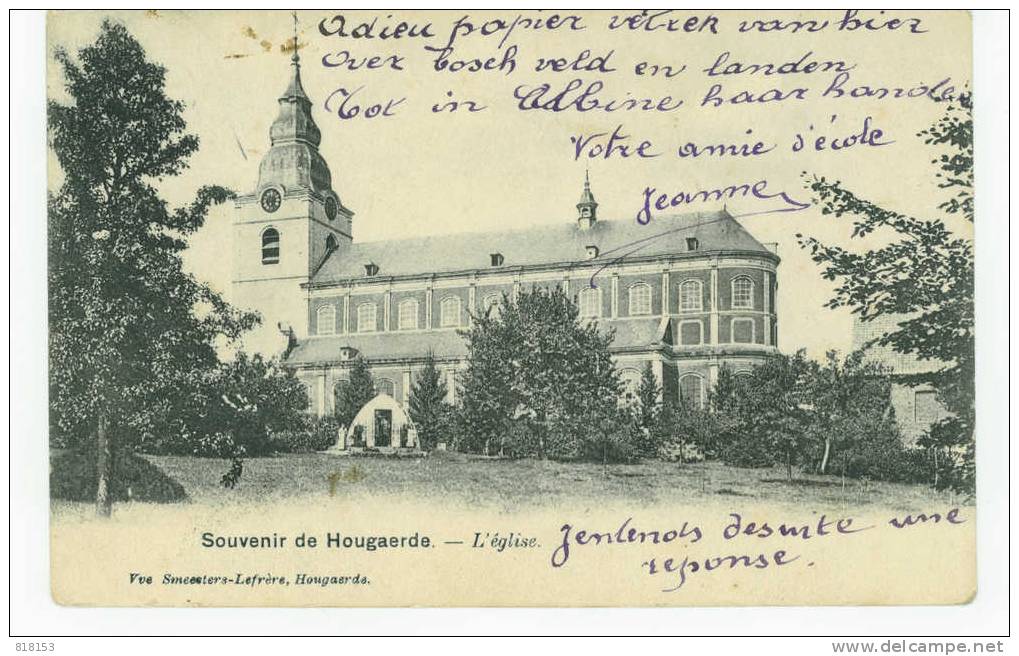 Adieu papier vetrek van hier
Over bosch veld en landen
Tot in Albine haar handen
Votre amie d'école
Jeanne
Souvenir de Hougaerde. — L'église.
Jentends desuite une
reponse.
Vve Smeesters-Lefrère, Hougaerde.
818153
www.delcampe.net